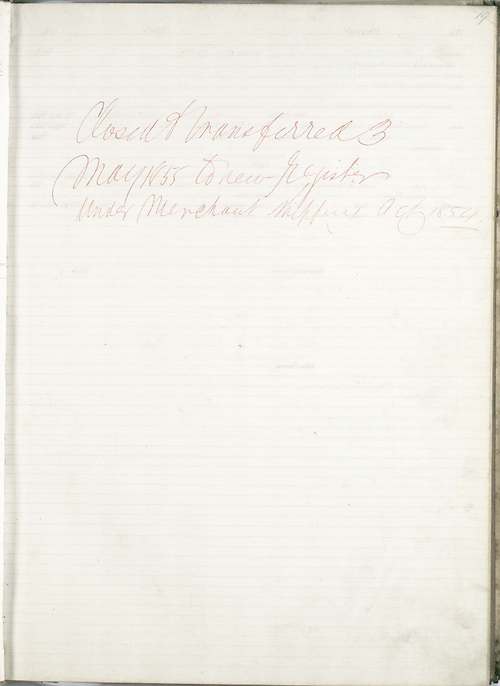 19
Closed & transferred 3
May 1855 to new Register
under Merchant Shipping Act 1854